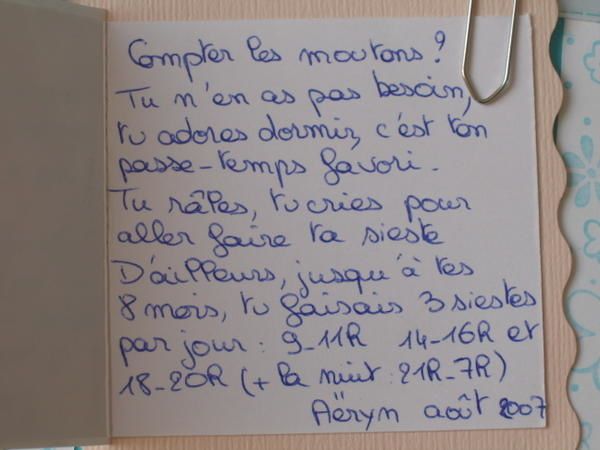 Compter les moutons ?
Tu n'en as pas besoin,
tu adores dormir, c'est ton
passe-temps favori.
Tu râles, tu cries pour
aller faire ta sieste
D'ailleurs, jusqu'à tes
8 mois, tu faisais 3 siestes
par jour : 9-11h 14-16h et
18-20h (+ la nuit : 21h-7h)
Aëryn août 2007